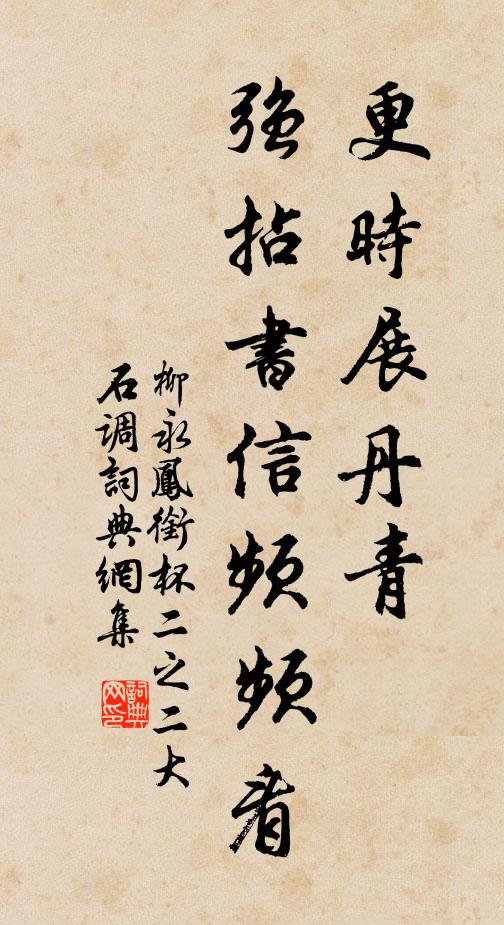 更時展丹青
強拈書信頻頻看
柳永鳳銜杯二之二大
石調詞典網集
詞典网印